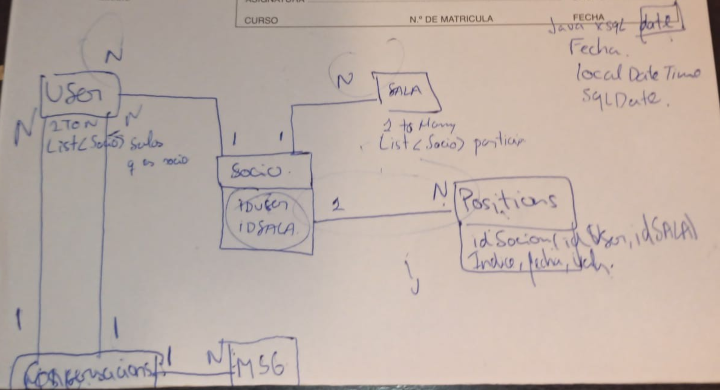 ASIGNATURA
CURSO
N.º DE MATRICULA
FECHA
Java sql date
Fecha.
local Date Time
Sql Date.
N
User
N
N
1 TO N
List<Socio> Salas
q es socio
N
SALA
1 to Many
List<Socio>
1
1
Socio.
IDUSER
IDSALA
1
N
Positions
idSocion(idUser, idSALA)
Indice, fecha,
1
1
Conversacions
1
N
MSG